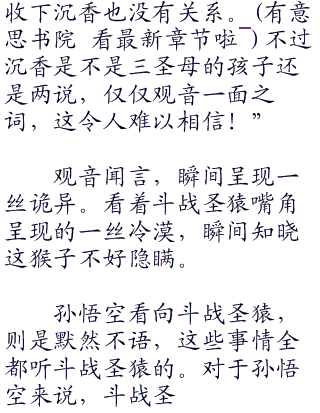 收下沉香也没有关系。(有意
思书院 看最新章节啦¯)不过
沉香是不是三圣母的孩子还
是两说，仅仅观音一面之
词，这令人难以相信！”
观音闻言，瞬间呈现一
丝诡异。看着斗战圣猿嘴角
呈现的一丝冷漠，瞬间知晓
这猴子不好隐瞒。
孙悟空看向斗战圣猿，
则是默然不语，这些事情全
都听斗战圣猿的。对于孙悟
空来说，斗战圣